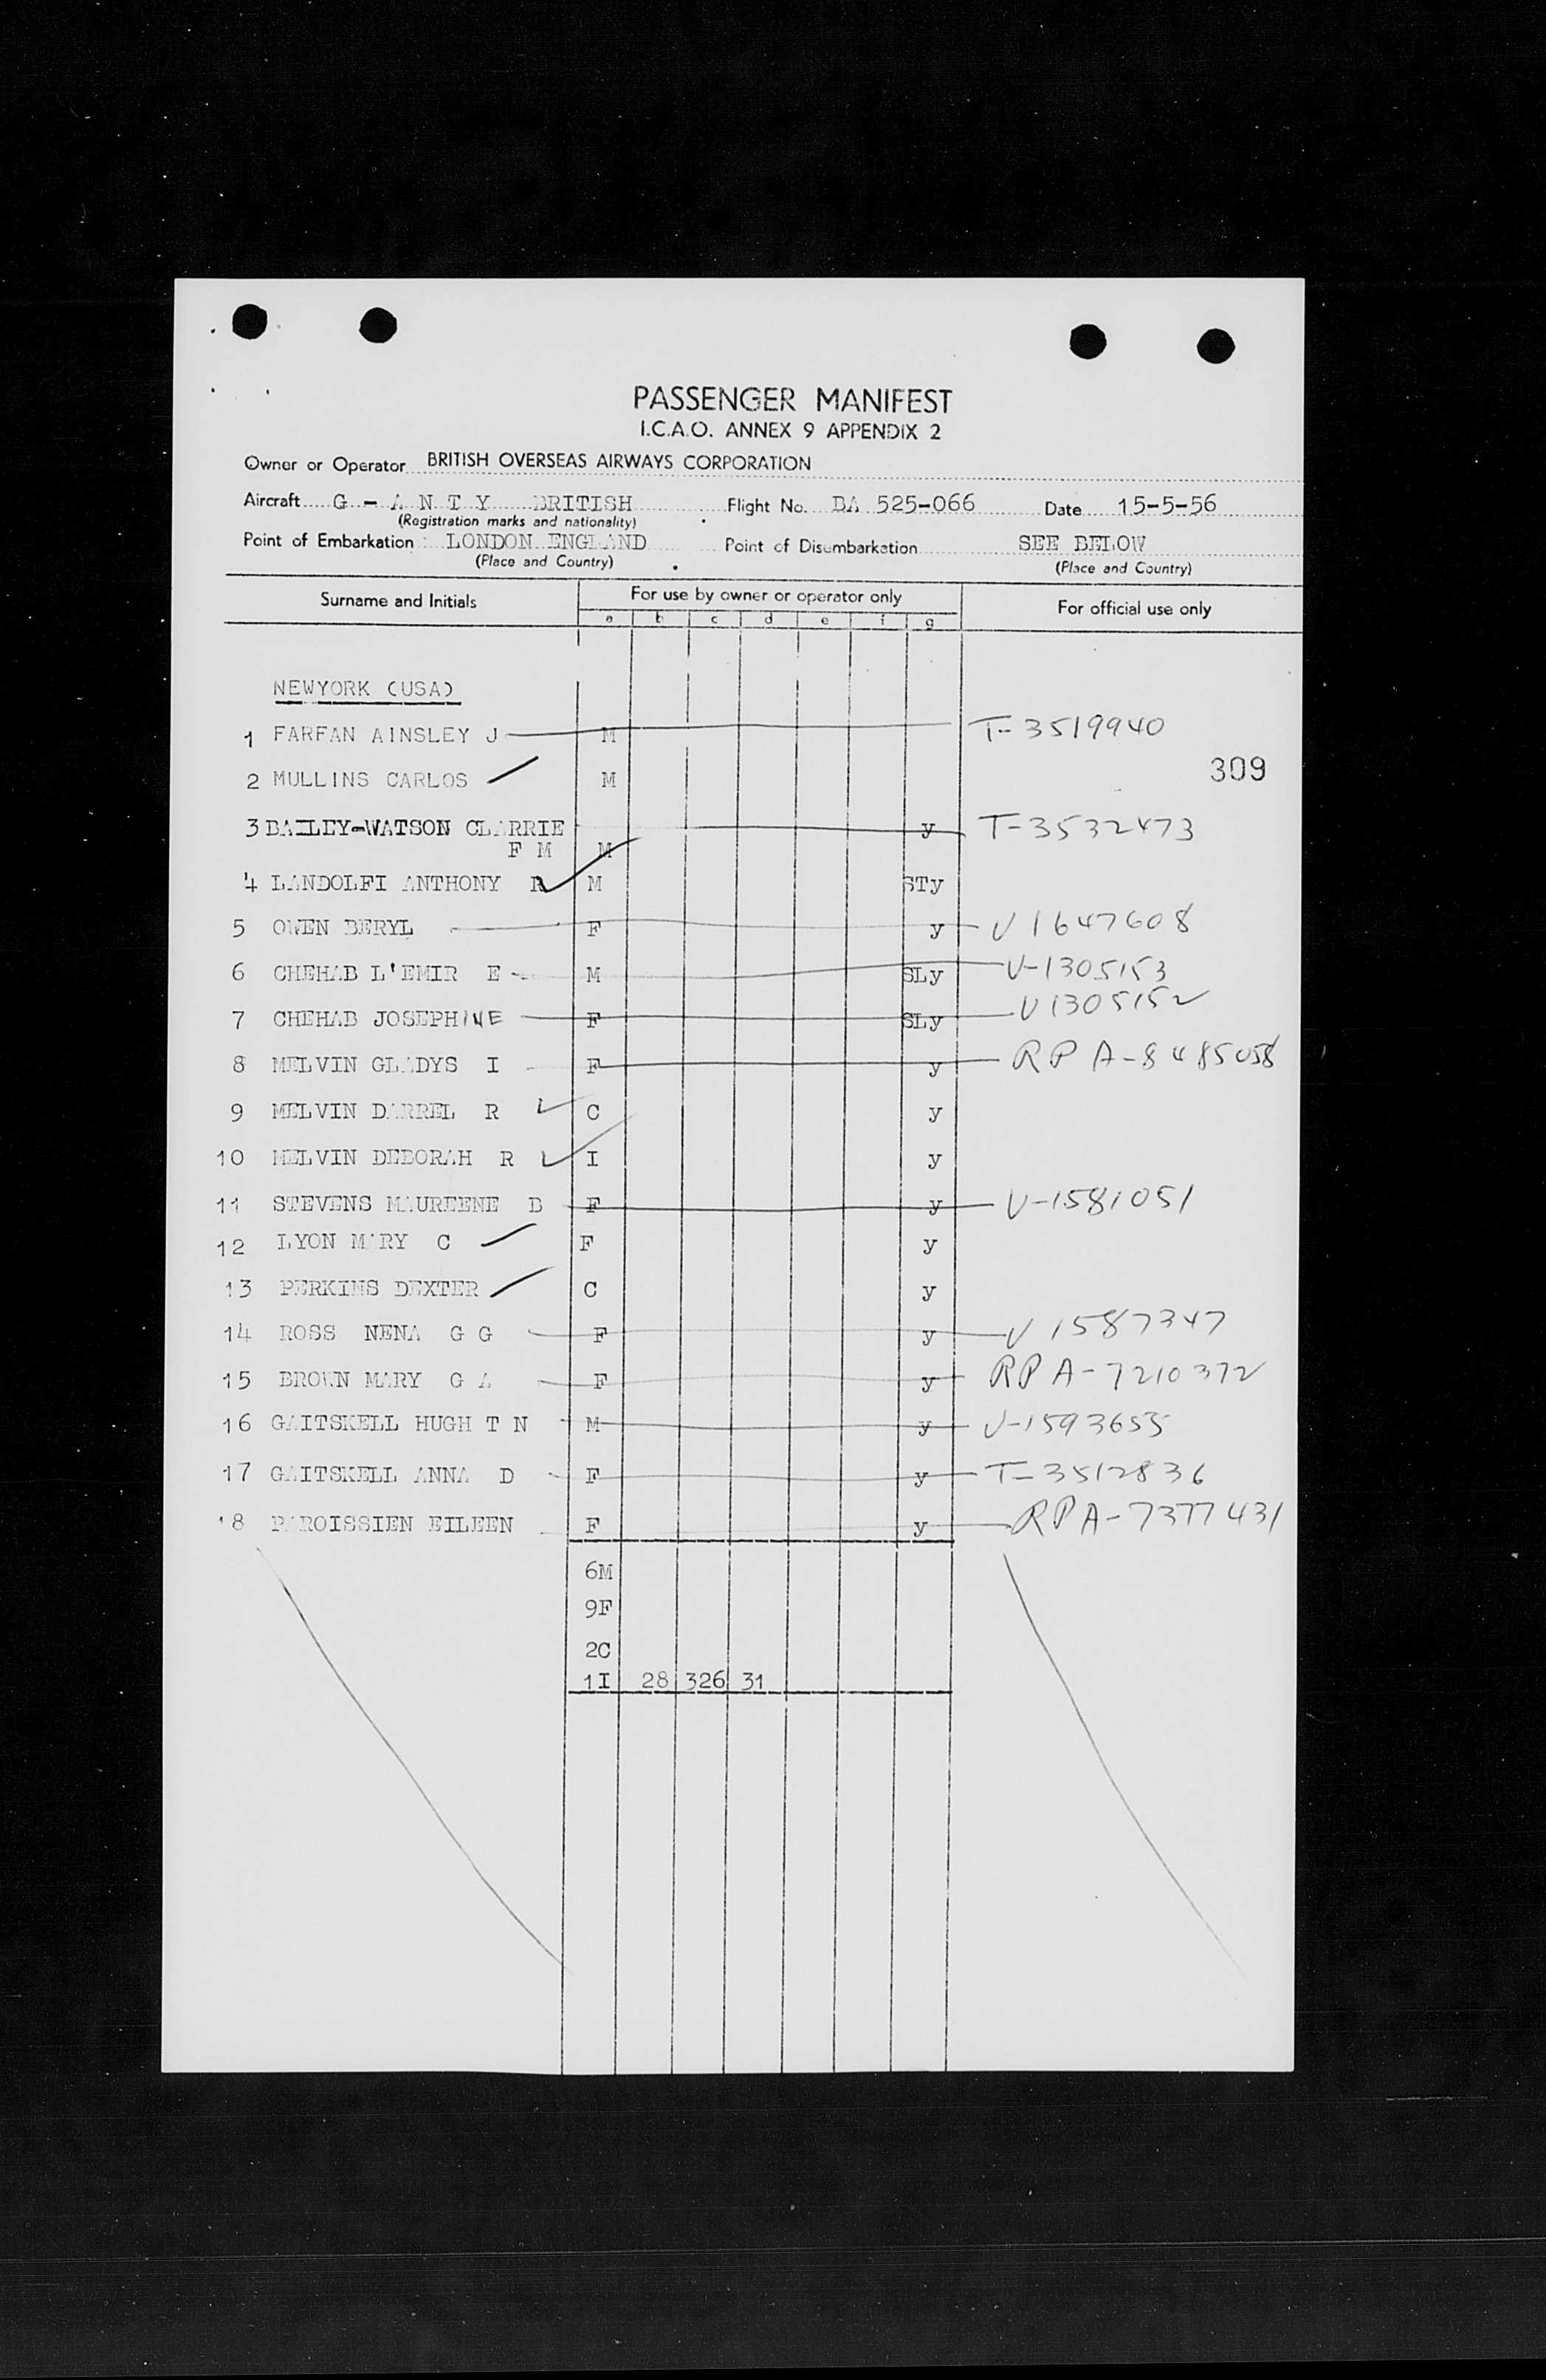 PASSENGER MANIFEST
I.C.A.O. ANNEX 9 APPENDIX 2
Owner or Operator BRITISH OVERSEAS AIRWAYS CORPORATION
Aircraft G - A N T Y BRITISH Flight No. BA 525-066 Date 15-5-56
(Registration marks and nationality)
Point of Embarkation : LONDON ENGLAND Point of Disembarkation SEE BELOW
(Place and Country) (Place and Country)
Surname and Initials For use by owner or operator only For official use only
a b c d e f g
NEWYORK (USA)
1 FARFAN AINSLEY J M T-3519940
309
2 MULLINS CARLOS M
3 BAILEY-WATSON CLARRIE y T-3532473
F M M
4 LANDOLFI ANTHONY R M STy
5 OWEN BERYL F y V 1647608
6 CHEHAB L'EMIR E M SLy V-1305153
7 CHEHAB JOSEPHINE F SLy V 1305152
8 MELVIN GLADYS I F y RP A-8485058
9 MELVIN DARREL R C y
10 MELVIN DEBORAH R I y
11 STEVENS MAUREENE B F y V-1581051
12 LYON MARY C F y
13 PERKINS DEXTER C y
14 ROSS NENA G G F y V 1587347
15 BROWN MARY G A F y RP A-7210372
16 GAITSKELL HUGH T N M y V-1593655
17 GAITSKELL ANNA D F y T-3512836
18 PAROISSIEN EILEEN F y RP A-7377431
6M
9F
2C
1I 28 326 31